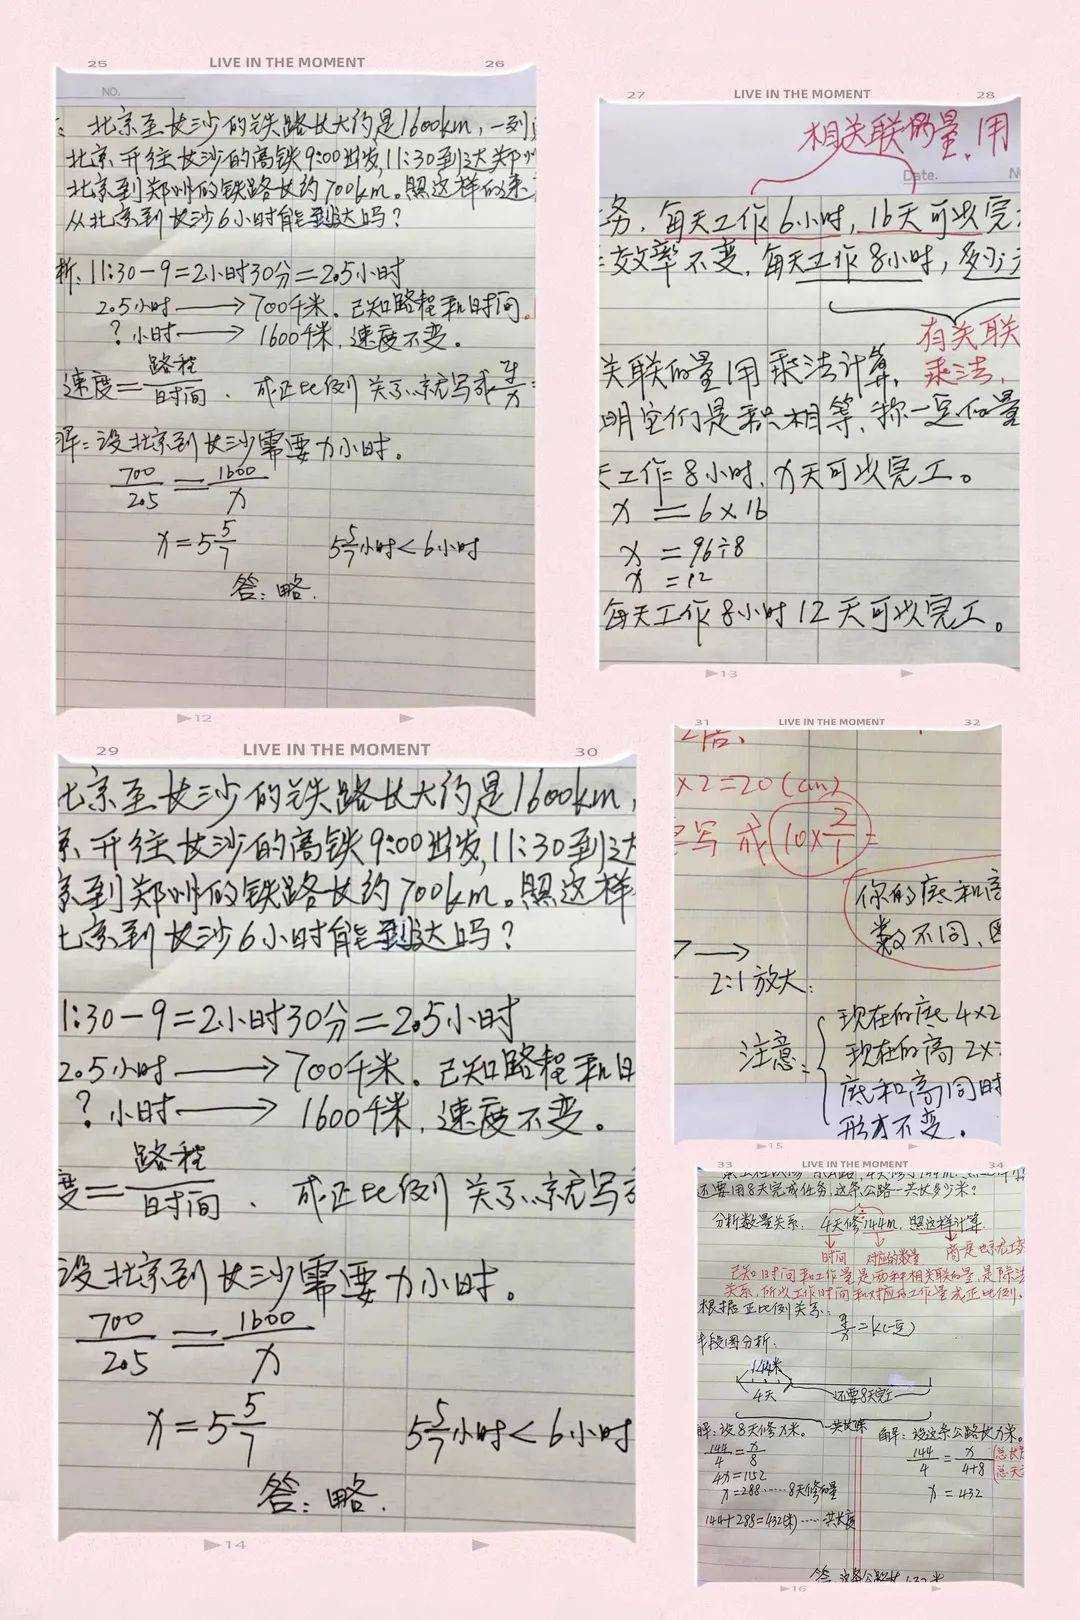 25 LIVE IN THE MOMENT 26
NO.
北京至长沙的铁路长大约是1600km,一列
北京开往长沙的高铁9:00出发,11:30到达郑州
北京到郑州的铁路长约700km。照这样的速
从北京到长沙6小时能到达吗?
析:11:30-9=2小时30分=2.5小时
2.5小时→700千米。已知路程和时间。
?小时→1600千米,速度不变。
速度=路程/时间. 成正比例关系就写成y/x=
解:设北京到长沙需要x小时。
700/2.5=1600/x
x=5 5/7 5 5/7小时<6小时
答:略.
12
27 LIVE IN THE MOMENT 28
相关联的量,用
Date.
务,每天工作6小时,16天可以完
效率不变,每天工作8小时,多少天
有关联
关联的量用乘法计算, 乘法,
明它们是积相等,称一定的量
天工作8小时,x天可以完工。
x=6×16
x=96÷8
x=12
每天工作8小时12天可以完工。
13
29 LIVE IN THE MOMENT 30
北京至长沙的铁路长大约是1600km,
京开往长沙的高铁9:00出发,11:30到达
京到郑州的铁路长约700km。照这样
北京到长沙6小时能到达吗?
1:30-9=2小时30分=2.5小时
2.5小时→700千米。已知路程和时
?小时→1600千米,速度不变。
度=路程/时间. 成正比例关系就写成
设北京到长沙需要x小时。
700/2.5=1600/x
x=5 5/7 5 5/7小时<6小时
答:略.
14
31 LIVE IN THE MOMENT 32
2倍.
×2=20(cm)
写成10×2/1=
你的底和高
数不同,图
2:1放大:
注意:
现在的底4×2
现在的高2×
底和高同时
形才不变。
15
33 LIVE IN THE MOMENT 34
还要用8天完成任务,这条公路一共长多少米?
分析数量关系. 4天修144m,照这样计算.
时间 对应的数量
已知时间和工作量是两种相关联的量,是除法
关系,所以工作时间和对应的工作量成正比例。
根据正比例关系:
y/x=k(一定)
线段图分析:
144米
4天 还要8天完工
共长?米
解:设8天修x米。 解:设这条公路长x米。
144/4=x/8 144/4=x/4+8
4x=1152 x=432
x=288……8天修的量
144+288=432(米)……共长度
16